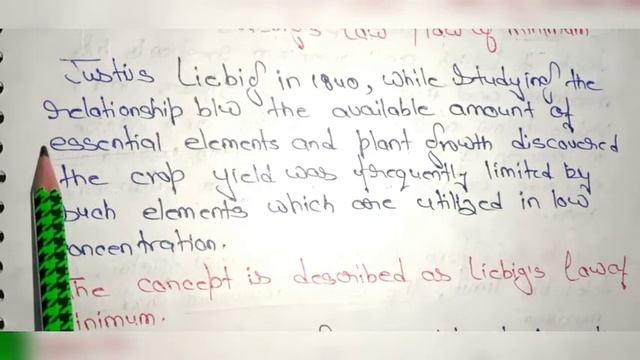 law of minimum
Justus Liebig in 1840, while studying the
relationship b/w the available amount of
essential elements and plant growth discovered
the crop yield was frequently limited by
such elements which are utilized in low
oncentration.
The concept is described as Liebig's law of
inimum.